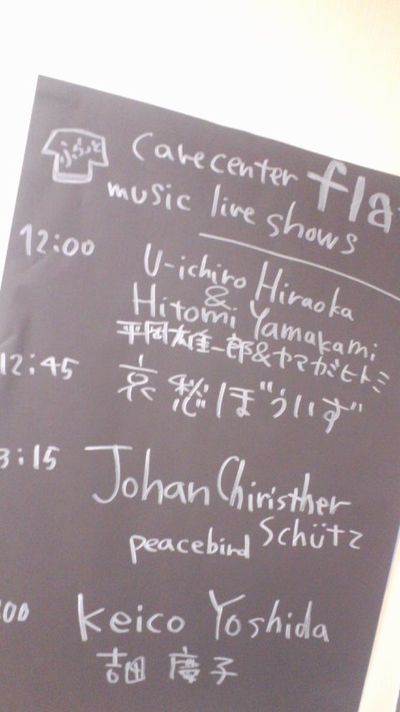 ふらっと
Carecenter fla
music live shows
12:00
U-ichiro Hiraoka
&
Hitomi Yamakami
平岡雄一郎&ヤマガミヒトミ
12:45
哀愁ぼういず
3:15
Johan Chiristher
Schütz
peacebird
:00
Keico Yoshida
吉田 慶子